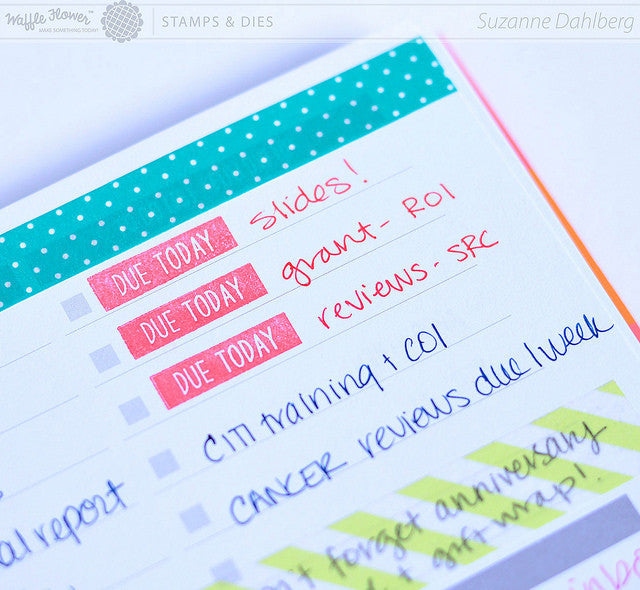 Waffle Flower™
MAKE SOMETHING TODAY!
STAMPS & DIES
Suzanne Dahlberg
DUE TODAY slides!
DUE TODAY grant - R01
DUE TODAY reviews - SRC
CITI training + COI
CANCER reviews due 1 week
al report
't forget anniversary
+ gift wrap!